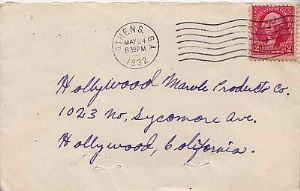 ATHENS, GA.
MAY 24
8 PM
1932
2 2
Hollywood Marble Products Co.
1023 No. Sycamore Ave.
Hollywood, California.